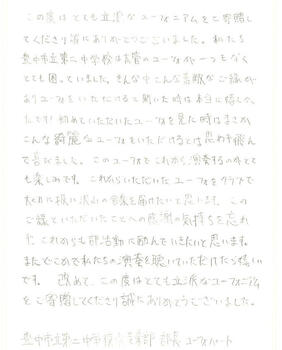 この度はとても立派なユーフォニアムをご寄贈
してくださり誠にありがとうございました。私たち
豊中市立第二中学校は吹管のユーフォが一つもなく
とても困っていました。そんな中こんな素敵なご縁が
ありユーフォをいただけると聞いた時は本当に嬉しか
ったです!初めていただいたユーフォを見た時はまさか
こんな綺麗なユーフォをいただけるとは思わず飛ん
で喜びました。このユーフォでこれから演奏するのがとて
も楽しみです。これからいただいたユーフォをクラブで
大切に扱い沢山の音楽を届けたいと思います。この
ご縁といただいたことへの感謝の気持ちを忘れ
ず、これからも部活動に励んでいきたいと思います。
またどこかで私たちの演奏を聴いていただけたら嬉しい
です。 改めて、この度はとても立派なユーフォニアム
をご寄贈してくださり誠にありがとうございました。
豊中市立第二中学校 部 部長 ユーフォパート